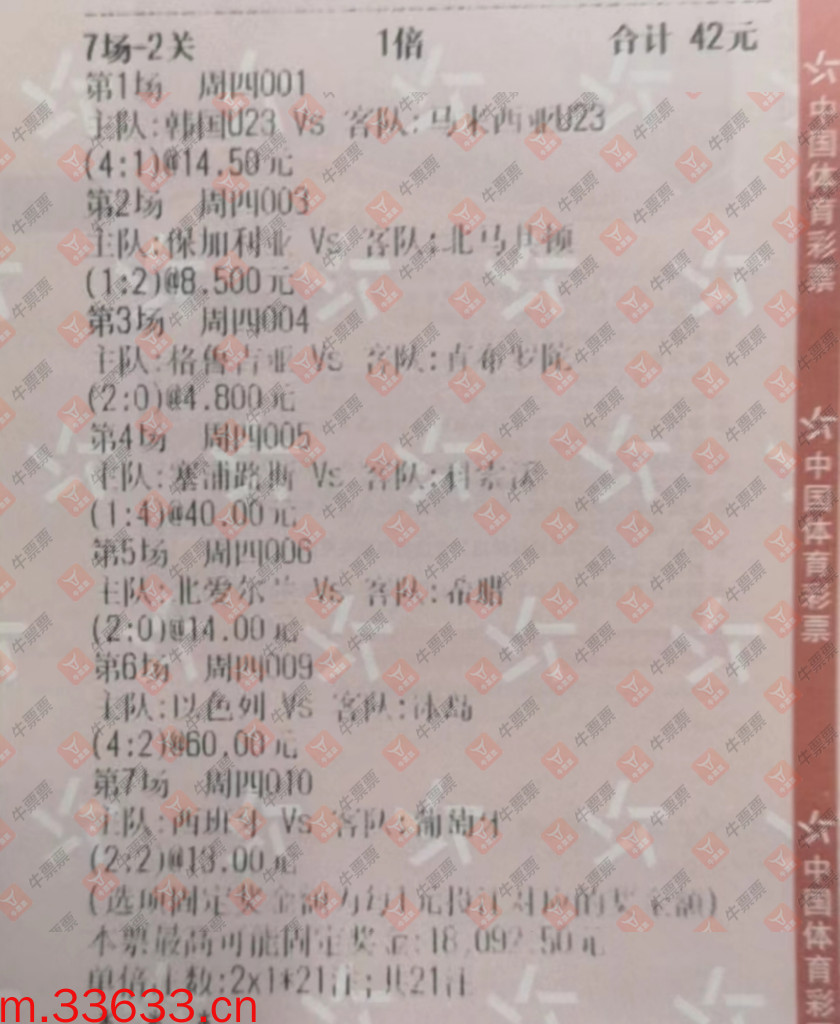 7场-2关 1倍 合计 42元
第1场 周四001
主队:韩国U23 Vs 客队:马来西亚U23
(4:1)@14.50元
第2场 周四003
主队:保加利亚 Vs 客队:北马其顿
(1:2)@8.500元
第3场 周四004
主队:格鲁吉亚 Vs 客队:直布罗陀
(2:0)@4.800元
第4场 周四005
主队:塞浦路斯 Vs 客队:科索沃
(1:4)@40.00元
第5场 周四006
主队:北爱尔兰 Vs 客队:希腊
(2:0)@14.00元
第6场 周四009
主队:以色列 Vs 客队:冰岛
(4:2)@60.00元
第7场 周四010
主队:西班牙 Vs 客队:葡萄牙
(2:2)@13.00元
(选项固定奖金额为每1元投注对应的奖金额)
本票最高可能固定奖金:18,092.50元
单倍注数:2x1*21注;共21注
m.33633.cn
中国体育彩票
中国体育彩票
中国体育彩
牛票票